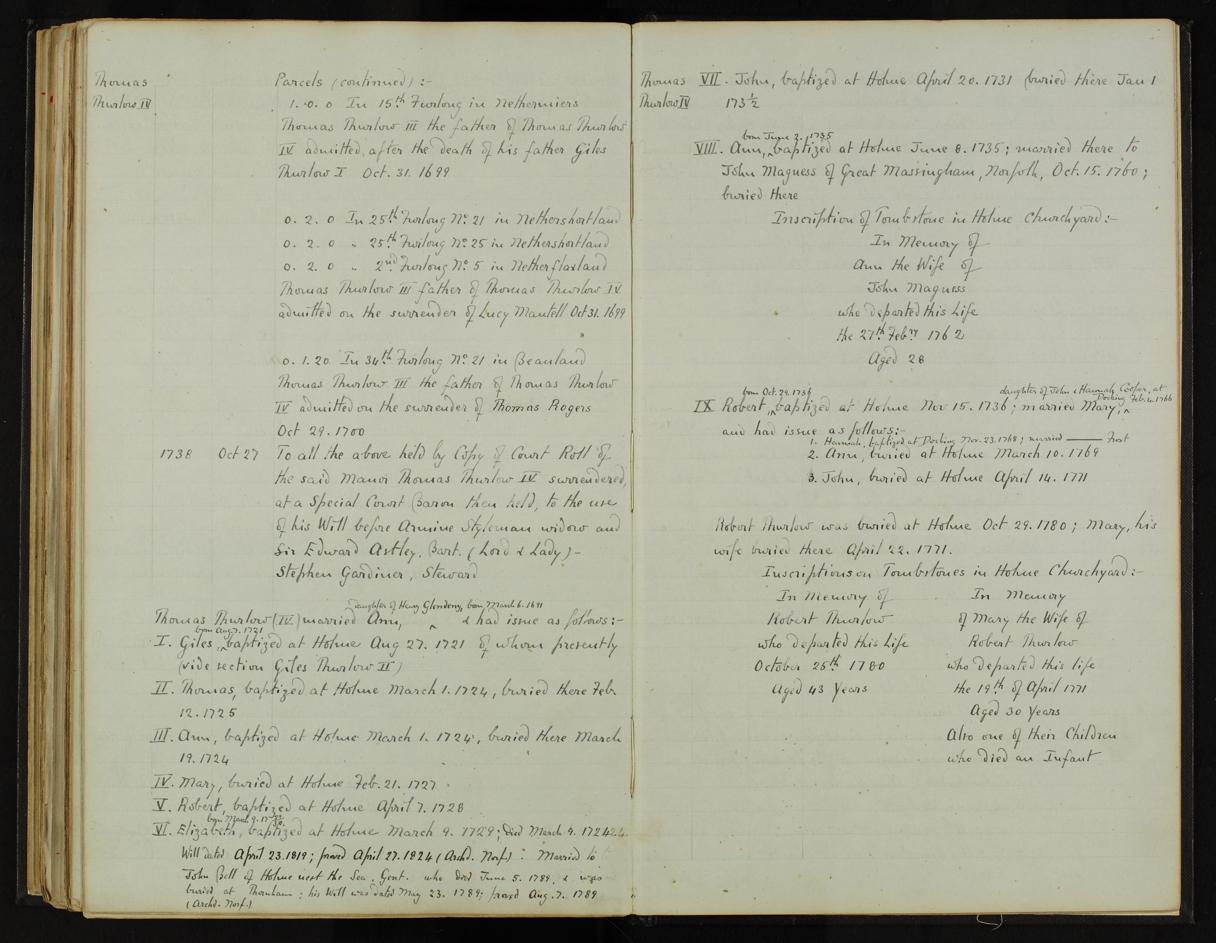 Thomas Thurlow IV
Parcels (continued) :-
1. 0. 0 In 15th Furlong in Nethermiers
Thomas Thurlow III the father of Thomas Thurlow
IV admitted, after the death of his father Giles
Thurlow I Oct. 31. 1699
0. 2. 0 In 25th Furlong No. 21 in Nethershortland
0. 2. 0 " 25th Furlong No. 25 in Nethershortland
0. 2. 0 " 2nd Furlong No. 5 in Netherflaxland
Thomas Thurlow III father of Thomas Thurlow IV
admitted on the surrender of Lucy Mantell Oct 31. 1699
0. 1. 20 In 34th Furlong No. 21 in Beauland
Thomas Thurlow III the father of Thomas Thurlow
IV admitted on the surrender of Thomas Rogers
Oct 29. 1700
1738 Oct 27 To all the above held by Copy of Court Roll of
the said Manor Thomas Thurlow IV surrendered,
at a Special Court Baron then held, to the use
of his Will before Armine Styleman widow and
Sir Edward Astley, Bart. (Lord & Lady) -
Stephen Gardiner, Steward
daughter of Henry born March 6. 1691
Thomas Thurlow (IV) married Ann, ^ & had issue as follows:-
born Aug. 7. 1721
I. Giles, ^ baptized at Holme Aug 27. 1721 of whom presently
(vide section Giles Thurlow II)
II. Thomas, baptized at Holme March 1. 1724, buried there Feb.
12. 1725
III. Ann, baptized at Holme March 1. 1724, buried there March
19. 1724
IV. Mary, buried at Holme Feb. 21. 1727
V. Robert, baptized at Holme April 7. 1728
born March 9.
VI. Elizabeth, baptized at Holme March 9. 1729; died March 4.
Will dated April 23. 1819; proved April 27. 1824 (Archd. Norf.) : Married to
John Bell of Holme next the Sea. Gent. who died June 5. 1789, & was
buried at Thornham; his Will was dated May 23. 1789; proved Aug. 7. 1789
(Archd. Norf.)
Thomas Thurlow IV
VII. John, baptized at Holme April 20. 1731 (buried there Jan 1
173½
born June 2. 1735
VIII. Ann, ^ baptized at Holme June 8. 1735; married there to
John Magness of Great Massingham, Norfolk, Oct. 15. 1760;
buried there
Inscription of Tombstone in Holme Churchyard:-
In Memory of
Ann the Wife of
John Magness
who departed this Life
the 27th Febry 1762
Aged 28
born Oct. 29. 1736 daughter of John & Hannah Cooper, at
Docking Feb. 1766
IX Robert, ^ baptized at Holme Nov 15. 1736; married Mary, ^
and had issue as follows:-
1. Hannah, baptized at Docking Nov. 23. 1768; married —— Frost
2. Ann, buried at Holme March 10. 1769
3. John, buried at Holme April 14. 1771
Robert Thurlow was buried at Holme Oct 29. 1780; Mary, his
wife buried there April 22. 1771.
Inscriptions on Tombstones in Holme Churchyard:-
In Memory of
Robert Thurlow
who departed this Life
October 25th 1780
Aged 43 Years
In Memory
of Mary the Wife of
Robert Thurlow
who departed this life
the 19th of April 1771
Aged 30 Years
Also one of their Children
who died an Infant